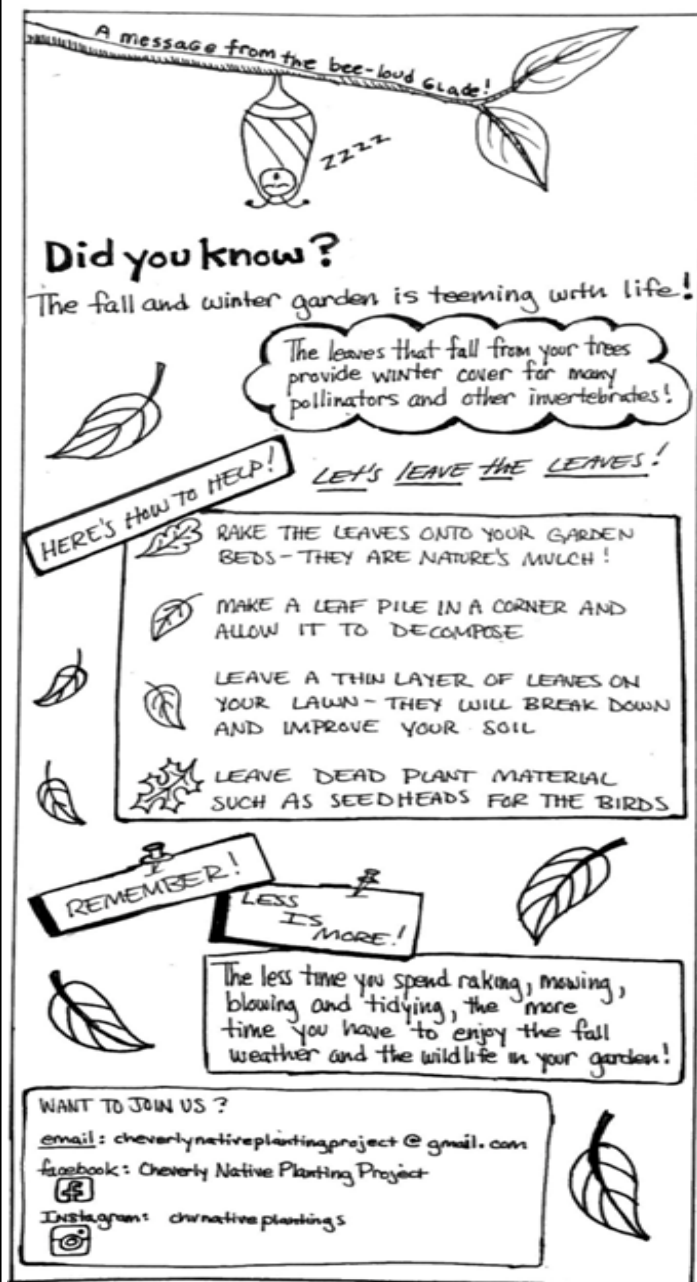 A message from the bee-loud Glade!
zzzz
Did you know?
The fall and winter garden is teeming with life!
The leaves that fall from your trees
provide winter cover for many
pollinators and other invertebrates!
HERE'S HOW TO HELP!
LET'S LEAVE the LEAVES!
RAKE THE LEAVES ONTO YOUR GARDEN
BEDS - THEY ARE NATURE'S MULCH!
MAKE A LEAF PILE IN A CORNER AND
ALLOW IT TO DECOMPOSE
LEAVE A THIN LAYER OF LEAVES ON
YOUR LAWN - THEY WILL BREAK DOWN
AND IMPROVE YOUR SOIL
LEAVE DEAD PLANT MATERIAL
SUCH AS SEEDHEADS FOR THE BIRDS
REMEMBER!
LESS
IS
MORE!
The less time you spend raking, mowing,
blowing and tidying, the more
time you have to enjoy the fall
weather and the wildlife in your garden!
WANT TO JOIN US?
email: cheverlynativeplantingproject@gmail.com
facebook: Cheverly Native Planting Project
f
Instagram: chvnativeplantings